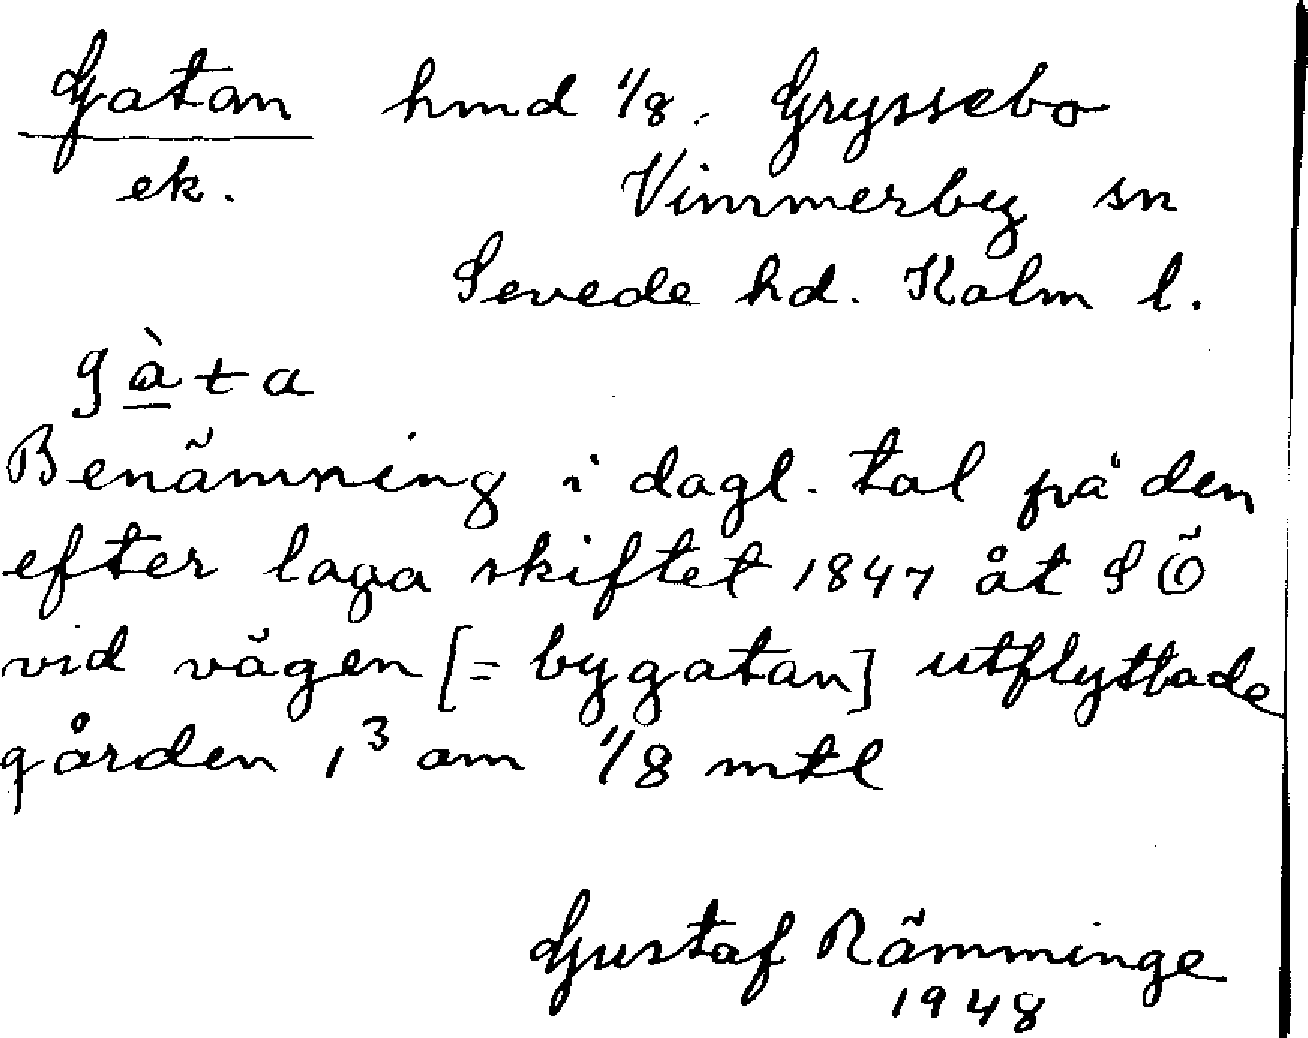 Gatan hmd 1/8. Gryssebo
ek. Vimmerby sn
Sevede hd. Kalm l.
gàta
Benämning i dagl. tal på den
efter laga skiftet 1847 åt SÖ
vid vägen [= bygatan] utflyttade
gården 1³ om 1/8 mtl
Gustaf Rämminge
1948